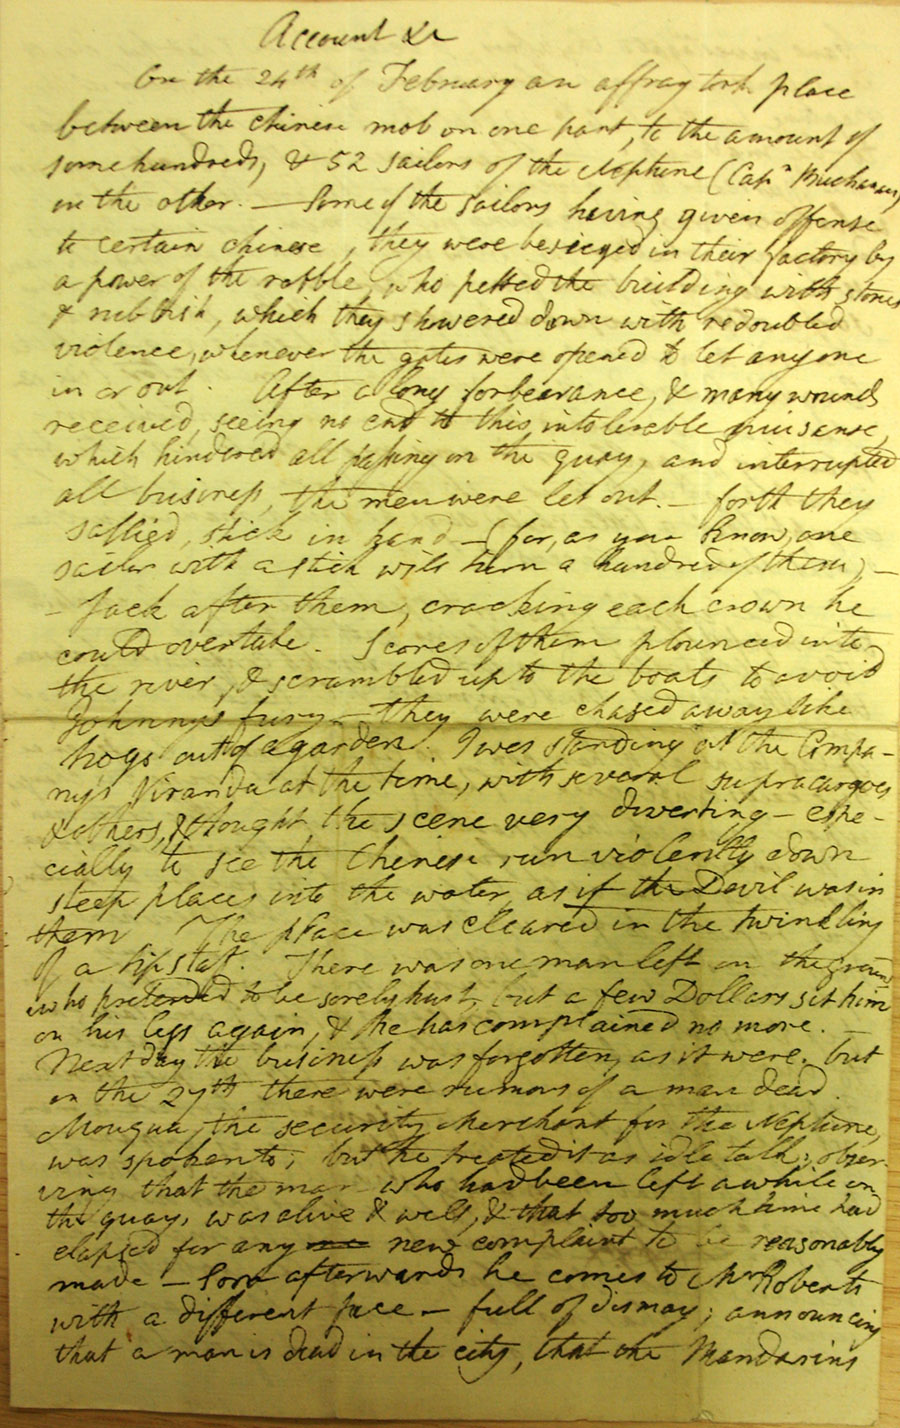 Account &c
On the 24th of February an affray took place
between the chinese mob on one part, to the amount of
some hundreds, & 52 sailors of the Neptune (Capn Buchanan)
on the other. — Some of the sailors having given offense
to certain chinese, they were besieged in their factory by
a power of the rabble, who pelted the building with stones
& rubbish, which they showered down with redoubled
violence, whenever the gates were opened to let any one
in or out. After a long forbearance, & many wounds
received, seeing no end to this intolerable nuisance,
which hindered all passing on the quay, and interrupted
all business, the men were let out. — forth they
sallied, stick in hand — (for, as you know, one
sailor with a stick will turn a hundred of them) —
— Jack after them, cracking each crown he
could overtake. Scores of them plounced into
the river, & scrambled up to the boats to avoid
Johnny's fury — they were chased away like
hogs out of a garden. I was standing at the Compa-
ny's Viranda at the time, with several supracargoes
& others, & thought the scene very diverting — espe-
cially to see the Chinese run violently down
steep places into the water, as if the Devil was in
them The place was cleared in the twinkling
of a tipstaff. There was one man left on the ground
who pretended to be sorely hurt, but a few Dollars set him
on his legs again, & he has complained no more. —
Next day the business was forgotten, as it were; but
on the 27th there were rumors of a man dead.
Mouqua, the security Merchant for the Neptune,
was spoken to; but he treated it as idle talk; obser-
ving that the man who had been left awhile on
the quay, was alive & well, & that too much time had
elapsed for any new complaint to be reasonably
made — Soon afterwards he comes to Mr Roberts
with a different face — full of dismay; announcing
that a man is dead in the city, that the Mandarins